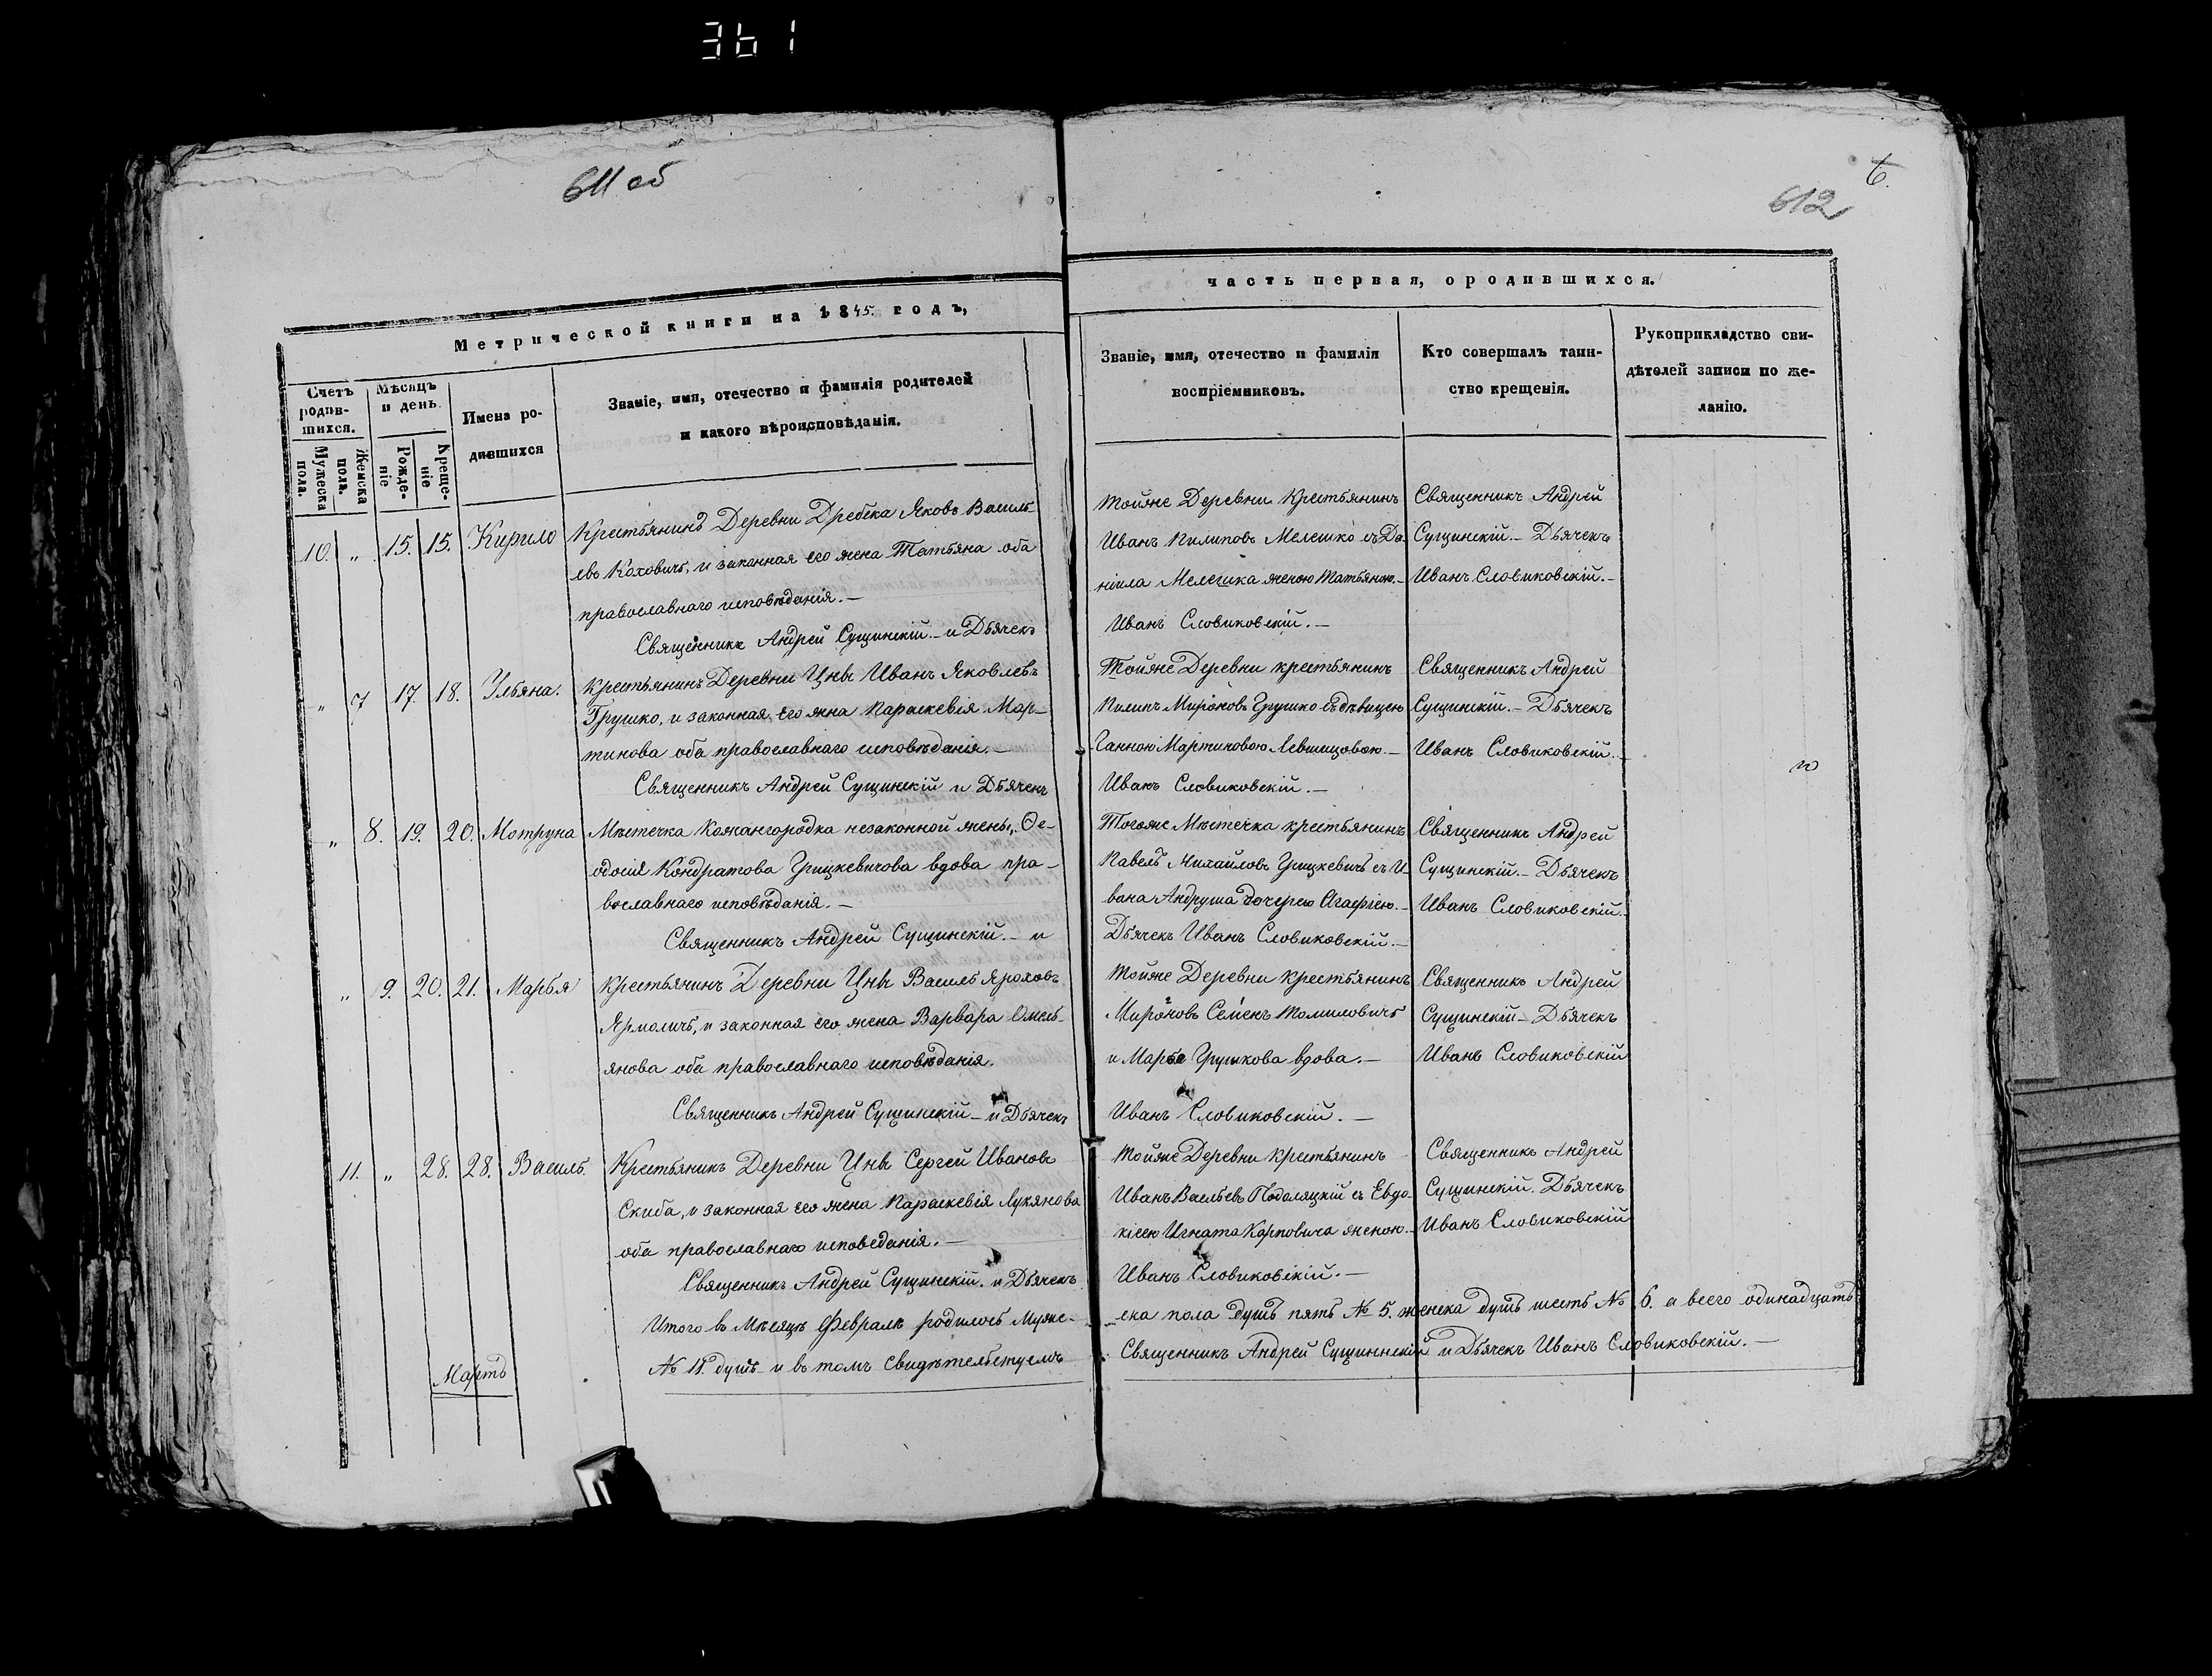 361
611 об
612
6.
Метрической книги на 1845. годъ,
часть первая, о родившихся.
Счетъ родив-
шихся.
Мужеска пола.
Женска пола.
Мѣсяцъ и день.
Рожде-
ніе
Креще-
ніе
Имена ро-
дившихся
Званіе, имя, отечество и фамилія родителей
и какого вѣроисповѣданія.
Званіе, имя, отечество и фамилія
воспріемниковъ.
Кто совершалъ таин-
ство крещенія.
Рукоприкладство сви-
дѣтелей записи по же-
ланію.
10. " 15. 15. Кирило
Крестьянинъ Деревни Дребска Яковъ Василь-
евъ Коховичъ, и законная его жена Татьяна оба
православнаго исповѣданія. —
Священникъ Андрей Сущинскій. — и Дьячекъ
Тойже Деревни Крестьянинъ
Иванъ Пилиповъ Мелешко съ Да-
ніила Мелешка женою Татьяною. —
Иванъ Словиковскій. —
Священникъ Андрей
Сущинскій. — Дьячекъ
Иванъ Словиковскій. —
" 7 17. 18. Ульяна.
Крестьянинъ Деревни Цны Иванъ Яковлевъ
Грушко, и законная его жна Параскевія Мар-
тинова оба православнаго исповѣданія. —
Священникъ Андрей Сущинскій и Дьячекъ
Тойже Деревни крестьянинъ
Пилипъ Мироновъ Грушко съ дѣвицею
Ганною Мартиновою Левшицовою. —
Иванъ Словиковскій. —
Священникъ Андрей
Сущинскій. — Дьячекъ
Иванъ Словиковскій. —
" 8. 19. 20. Мотруна
Мѣстечка Кожангородка незаконной жены, Ѳе-
одосія Кондратова Грицкевичова вдова пра-
вославнаго исповѣданія. —
Священникъ Андрей Сущинскій. — и
Тогоже Мѣстечка крестьянинъ
Павелъ Михайловъ Грицкевичъ съ И-
вана Андруша дочерею Агафіею. —
Дьячекъ Иванъ Словиковскій. —
Священникъ Андрей
Сущинскій. — Дьячекъ
Иванъ Словиковскій. —
" 9. 20. 21. Марья
Крестьянинъ Деревни Цны Василь Яроховъ
Ярмоличъ, и законная его жена Варвара Омель-
янова оба православнаго исповѣданія.
Священникъ Андрей Сущинскій — и Дьячекъ
Тойже Деревни крестьянинъ
Мироновъ Семенъ Томиловичъ
и Марья Грушкова вдова. —
Иванъ Словиковскій. —
Священникъ Андрей
Сущинскій — Дьячекъ
Иванъ Словиковскій
11. " 28. 28. Василь.
Крестьянинъ Деревни Цны Сергей Ивановъ
Скиба, и законная его жена Параскевія Лукянова
оба православнаго исповеданія. —
Священникъ Андрей Сущинскій. и Дьячекъ
Тойже Деревни крестьянинъ
Иванъ Васильевъ Подоляцкій съ Евдо-
кіею Игната Карповича женою. —
Иванъ Словиковскій. —
Священникъ Андрей
Сущинскій. Дьячекъ
Иванъ Словиковскій
Итого въ Мѣсяцѣ Февралѣ родилось Муже-
ска пола душъ пять № 5. женска душъ шесть № 6. а всего одинадцать
№ 11. душъ и въ томъ свидѣтельствуемъ
Священникъ Андрей Сущиннскій и Дьячекъ Иванъ Словиковскій. —
Мартъ